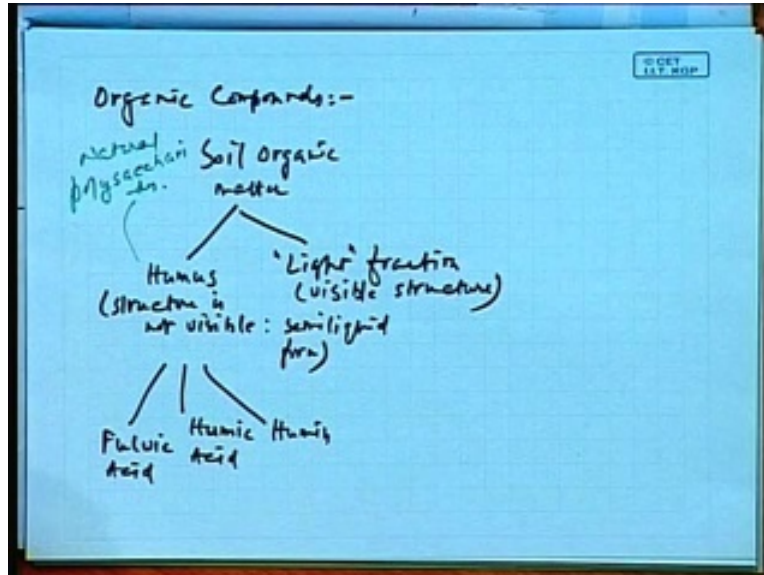 © CET
I.I.T. KGP
Organic Compounds:-
Natural
polysacchari
des.
Soil Organic
matter
Humus
(structure is
not visible: semiliquid
form)
"Light" fraction
(visible structure)
Fulvic
Acid
Humic
Acid
Humin